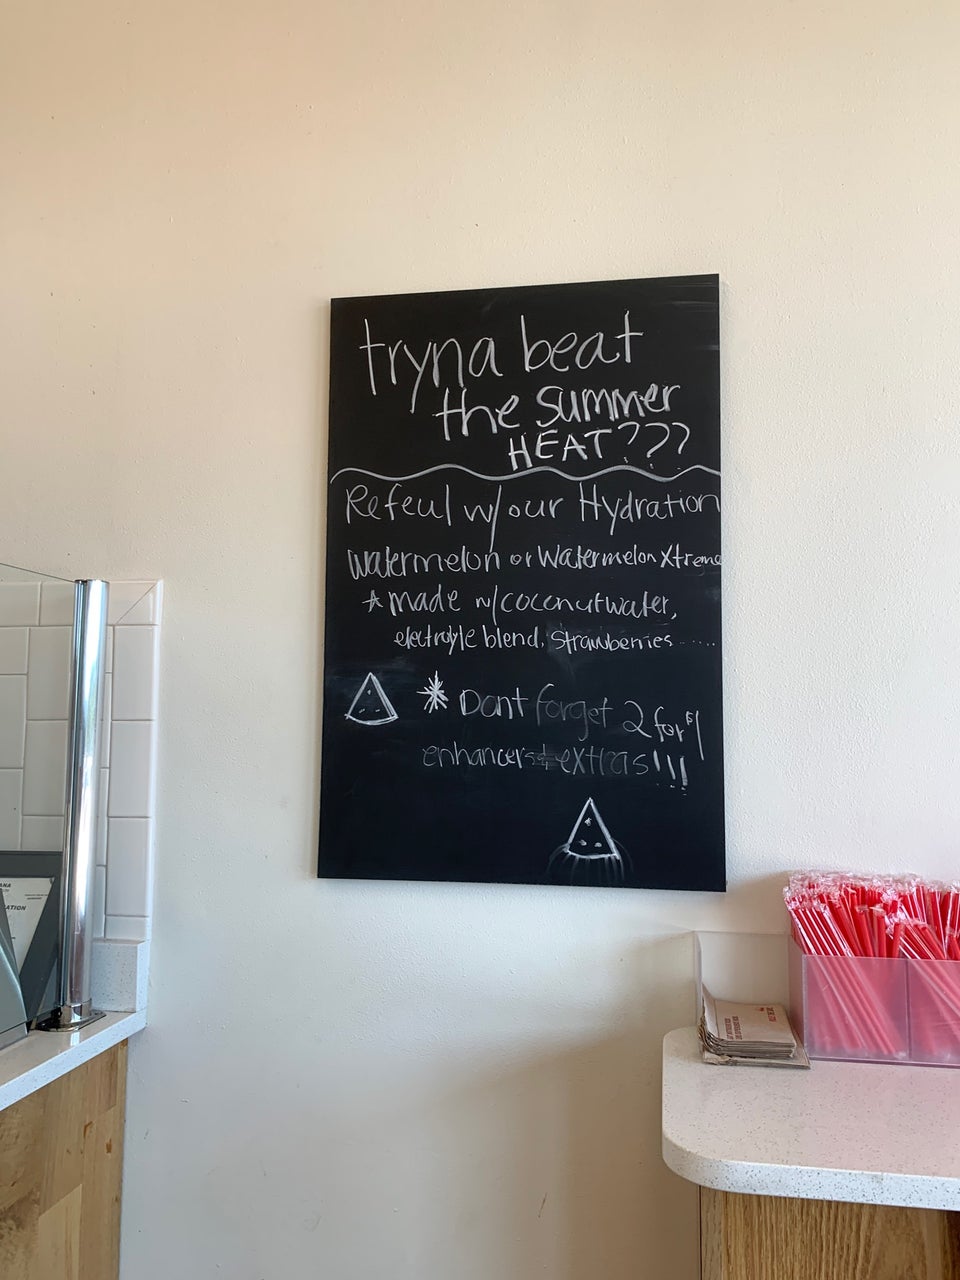 tryna beat
the summer
HEAT???
Refeul w/ our Hydration
watermelon or watermelon Xtreme
* made w/ coconut water,
electrolyte blend, strawberries......
* Dont forget 2 for $1
enhancers & extras!!!